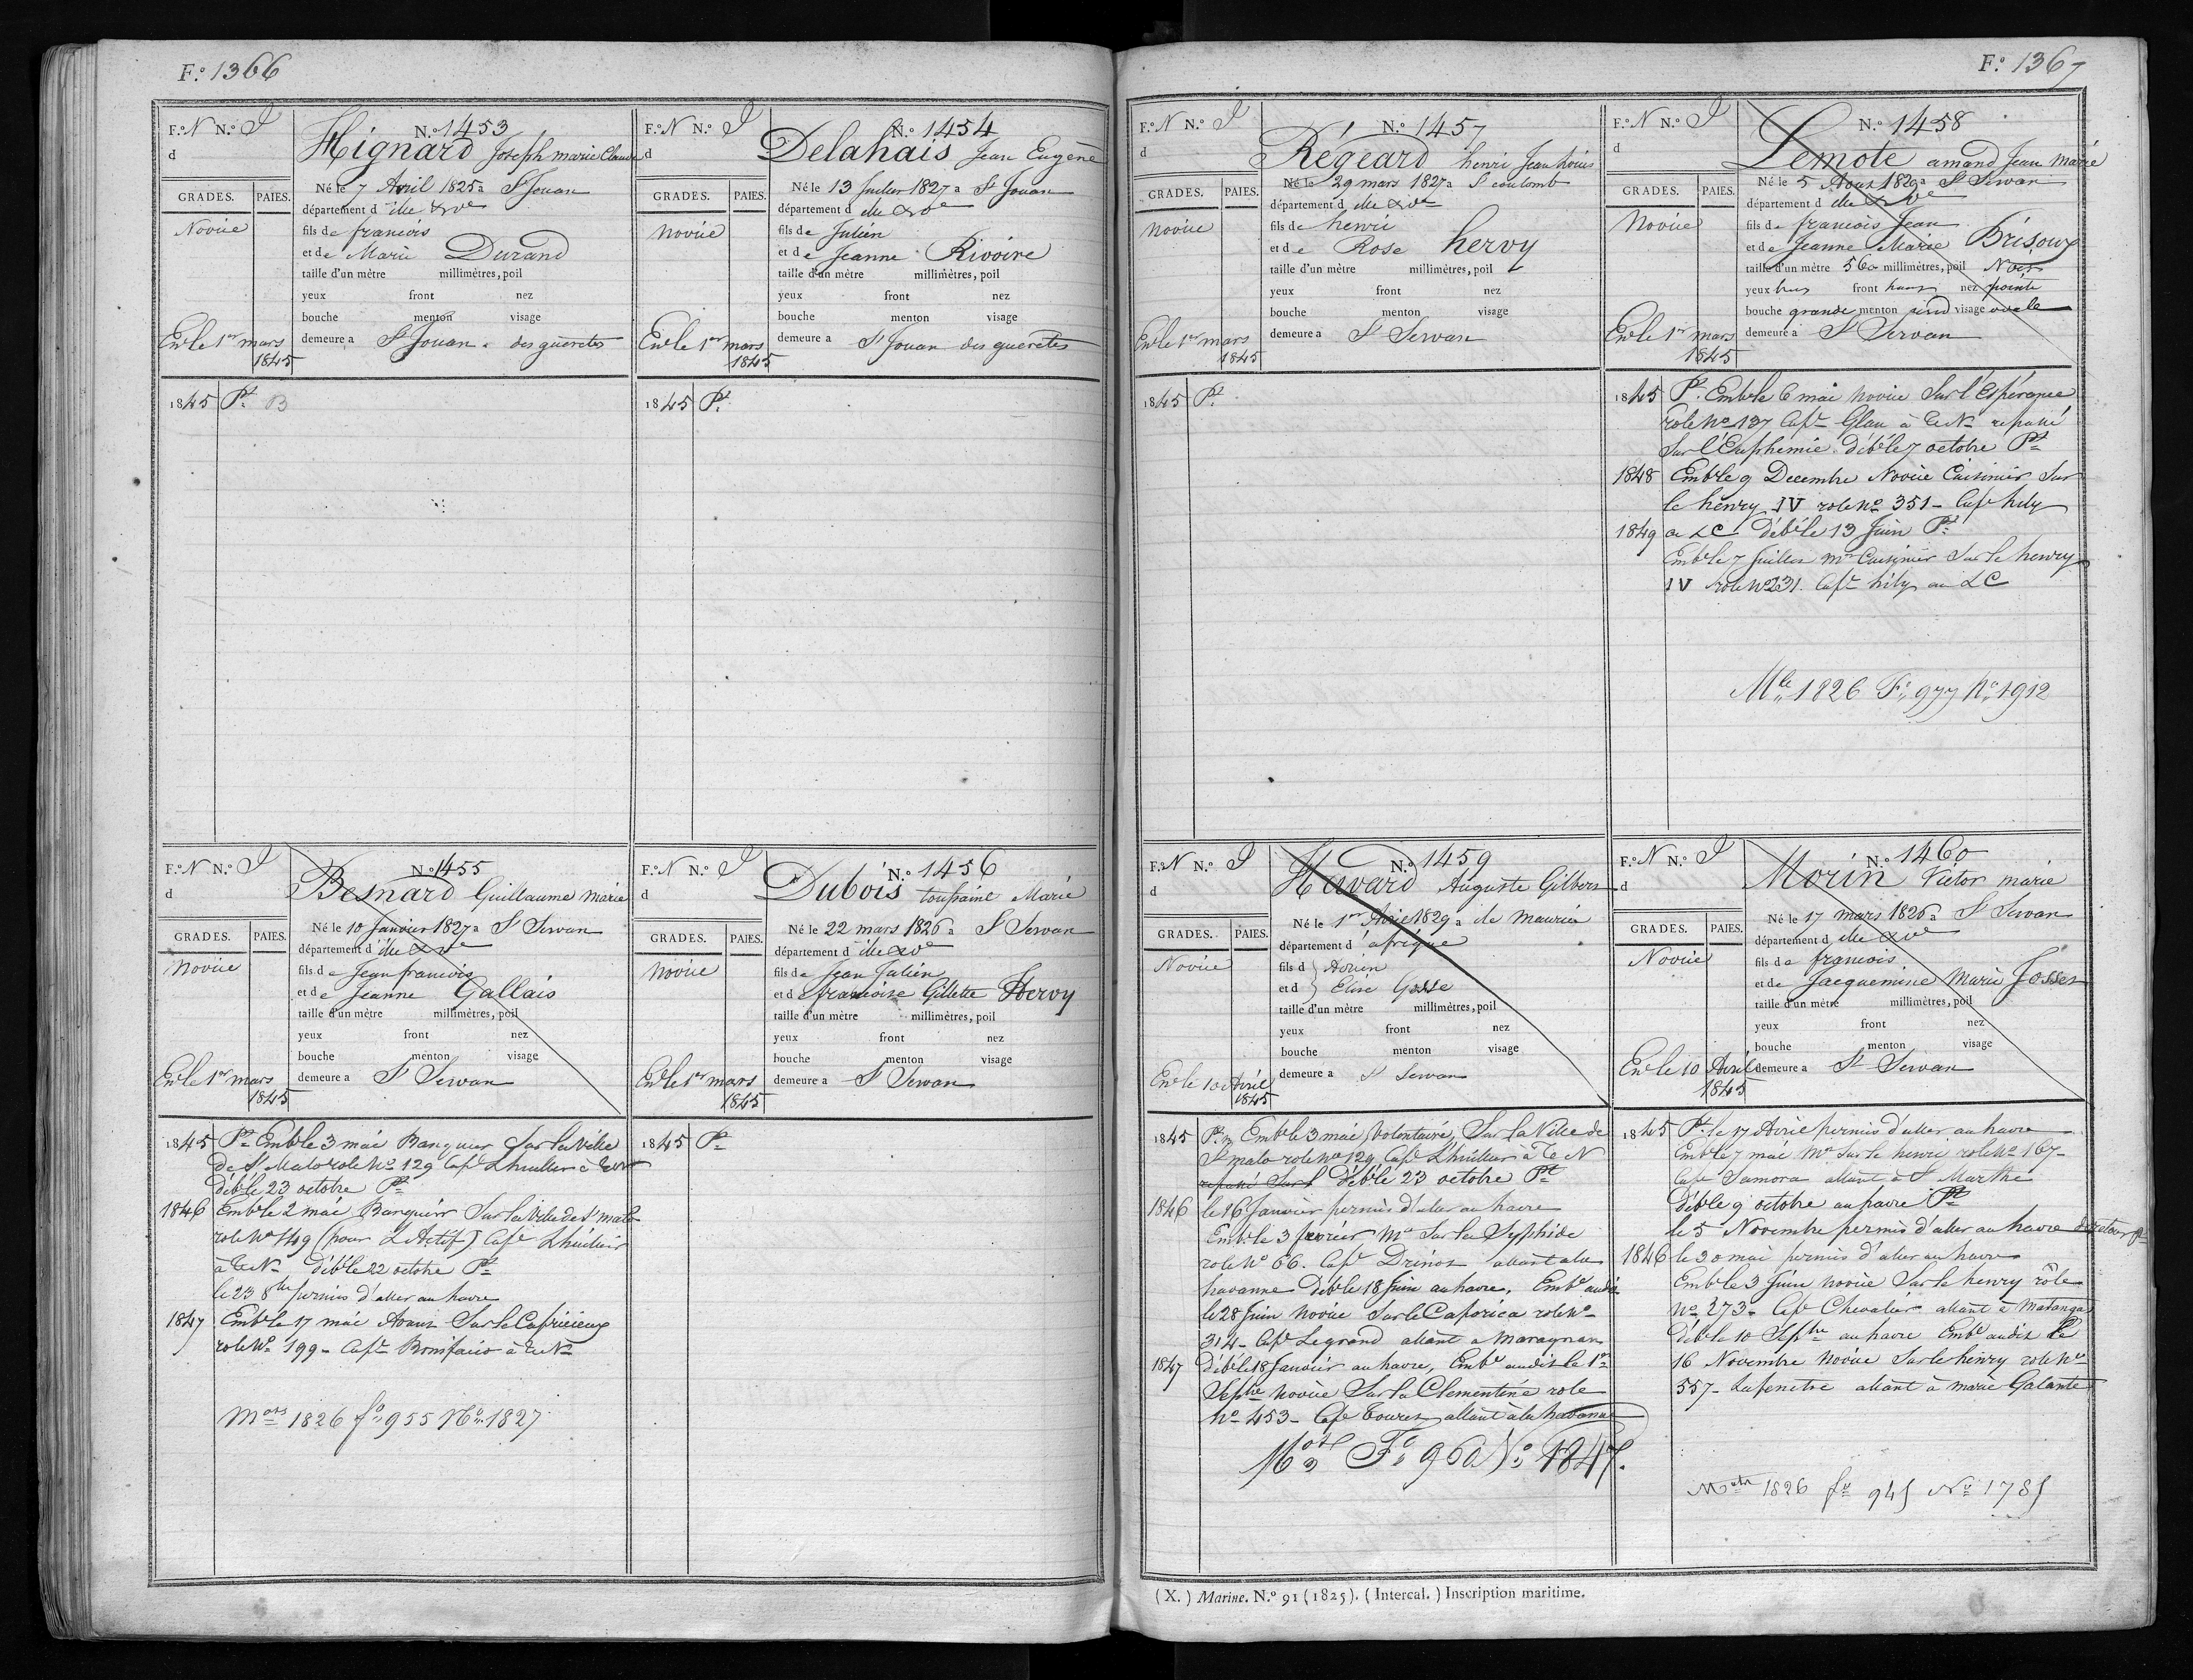 F.o 1366
F.o N N.o I
d
N.o 1453
Hignard Joseph marie Claude
GRADES. PAIES.
Novice
Né le 7 Avril 1825 a St Jouan
département d ille & Ve
fils de francois
et de Marie Durand
taille d'un mètre millimètres, poil
yeux front nez
bouche menton visage
demeure a St Jouan des guerets
Enle 1er mars
1845
1845 Pt B
F.o N N.o I
d
N.o 1454
Delahais Jean Eugène
GRADES. PAIES.
novice
Né le 13 Juillet 1827 a St Jouan
département d ille & Ve
fils de Julien
et de Jeanne Rivoire
taille d'un mètre millimètres, poil
yeux front nez
bouche menton visage
demeure a St Jouan des guerets
Enle 1er mars
1845
1845 Pt
F.o N N.o I
d
N.o 1455
Besnard Guillaume marie
GRADES. PAIES.
Novice
Né le 10 Janvier 1827 a St Servan
département d ille & Ve
fils de Jean francois
et de Jeanne Gallais
taille d'un mètre millimètres, poil
yeux front nez
bouche menton visage
demeure a St Servan
Enle 1er mars
1845
1845 Pt Emble 3 mai Banquier Sur la Ville
de St Malo role No 129 Cape Lhuillier à TeN
déble 23 octobre Pt
1846 Emble 2 mai Banquier Sur la Ville de St malo
role No 149 (pour L'Actif) Cape Lhuillier
à TeN déble 22 octobre Pt
le 23 8bre permis d'aller au havre
1847 Emble 17 mai Avant Sur le Capricieux
role No 199 - Cape Bonifacio à TeN
Mors 1826 fo 955 No 1827
F.o N N.o I
d
N.o 1456
Dubois toussaint Marie
GRADES. PAIES.
Novice
Né le 22 mars 1826 a St Servan
département d ille & Ve
fils de Jean Julien
et de francoise Gillette Hervy
taille d'un mètre millimètres, poil
yeux front nez
bouche menton visage
demeure a St Servan
Enle 1er mars
1845
1845 Pt
F.o 1367
F.o N N.o I
d
N.o 1457
Régeard henri Jean Louis
GRADES. PAIES.
novice
Né le 29 mars 1827 a St coulomb
département d ille & Ve
fils de henri
et de Rose hervy
taille d'un mètre millimètres, poil
yeux front nez
bouche menton visage
demeure a St Servan
Enle 1er mars
1845
1845 Pt
F.o N N.o I
d
N.o 1458
Lemote amand Jean Marie
GRADES. PAIES.
Novice
Né le 5 Aout 1829 a St Servan
département d ille & Ve
fils de francois Jean
et de Jeanne Marie Brisoux
taille d'un mètre 560 millimètres, poil Noir
yeux front haut nez pointu
bouche grande menton rond visage ovale
demeure a St Servan
Enle 1er mars
1845
1845 Pt Emble 6 mai novice Sur l'Espérance
role No 137 Capt Glau à TeN repassé
Sur l'Euphemie déble 7 octobre Pt
1848 Emble 9 Decembre Novice Cuisinier Sur
le henry IV role No 351 - Cape hily
1849 au LC débéle 13 Juin Pt
Emble 7 Juillet Me Cuisinier Sur le henry
IV role No 231. Capt hily au LC
Mle 1826 Fo 977 No 1912
F.o N N.o I
d
N.o 1459
Havard Auguste Gilbert
GRADES. PAIES.
Novice
Né le 1er Avril 1829 a ile Maurice
département d'afrique
fils d Adrien
et d Elise Gosse
taille d'un mètre millimètres, poil
yeux front nez
bouche menton visage
demeure a St Servan
Enle 10 Avril
1845
1845 Pt Emble 3 mai Volontaire, Sur la Ville de
St malo role No 129 Cape Lhuillier à TeN
repassé Sur l déble 23 octobre Pt
1846 le 16 Janvier permis d'aller au havre
Emble 3 fevrier Me Sur la Sylphide
role No 66. Cape Drinot allant a la
havanne déble 18 Juin au havre, Embe audit
le 28 Juin novice Sur le Caporica role No
314 - Cape Legrand allant a Maragnan
1847 débéle 18 Janvier au havre, Embe audit le 1er
Septbre novice Sur la Clementine role
No 453 - Cape Touret allant à la havanne
Mors Fo 960 No 1847.
F.o N N.o I
d
N.o 1460
Morin Victor marie
GRADES. PAIES.
Novice
Né le 17 mars 1826 a St Servan
département d ille & Ve
fils de francois
et de Jacquemine Marie Josset
taille d'un mètre millimètres, poil
yeux front nez
bouche menton visage
demeure a St Servan
Enle 10 Avril
1845
1845 Pt le 17 Avril permis d'aller au havre
Emble 7 mai Me Sur le henri role No 167 -
Cape Samora allant à St Marthe
déble 9 octobre au havre Pt
le 5 Novembre permis d'aller au havre de retour Pt
1846 le 30 mai permis d'aller au havre
Emble 3 Juin novice Sur le henry rôle
No 273 - Cape Chevalier allant à Matanga
déble 10 Septbre au havre Embe audit le
16 Novembre novice Sur le henry role No
557 - Lafenetre allant à marie Galante
Matr 1826 fo 945 No 1785
(X.) Marine. N.o 91 (1825). (Intercal.) Inscription maritime.